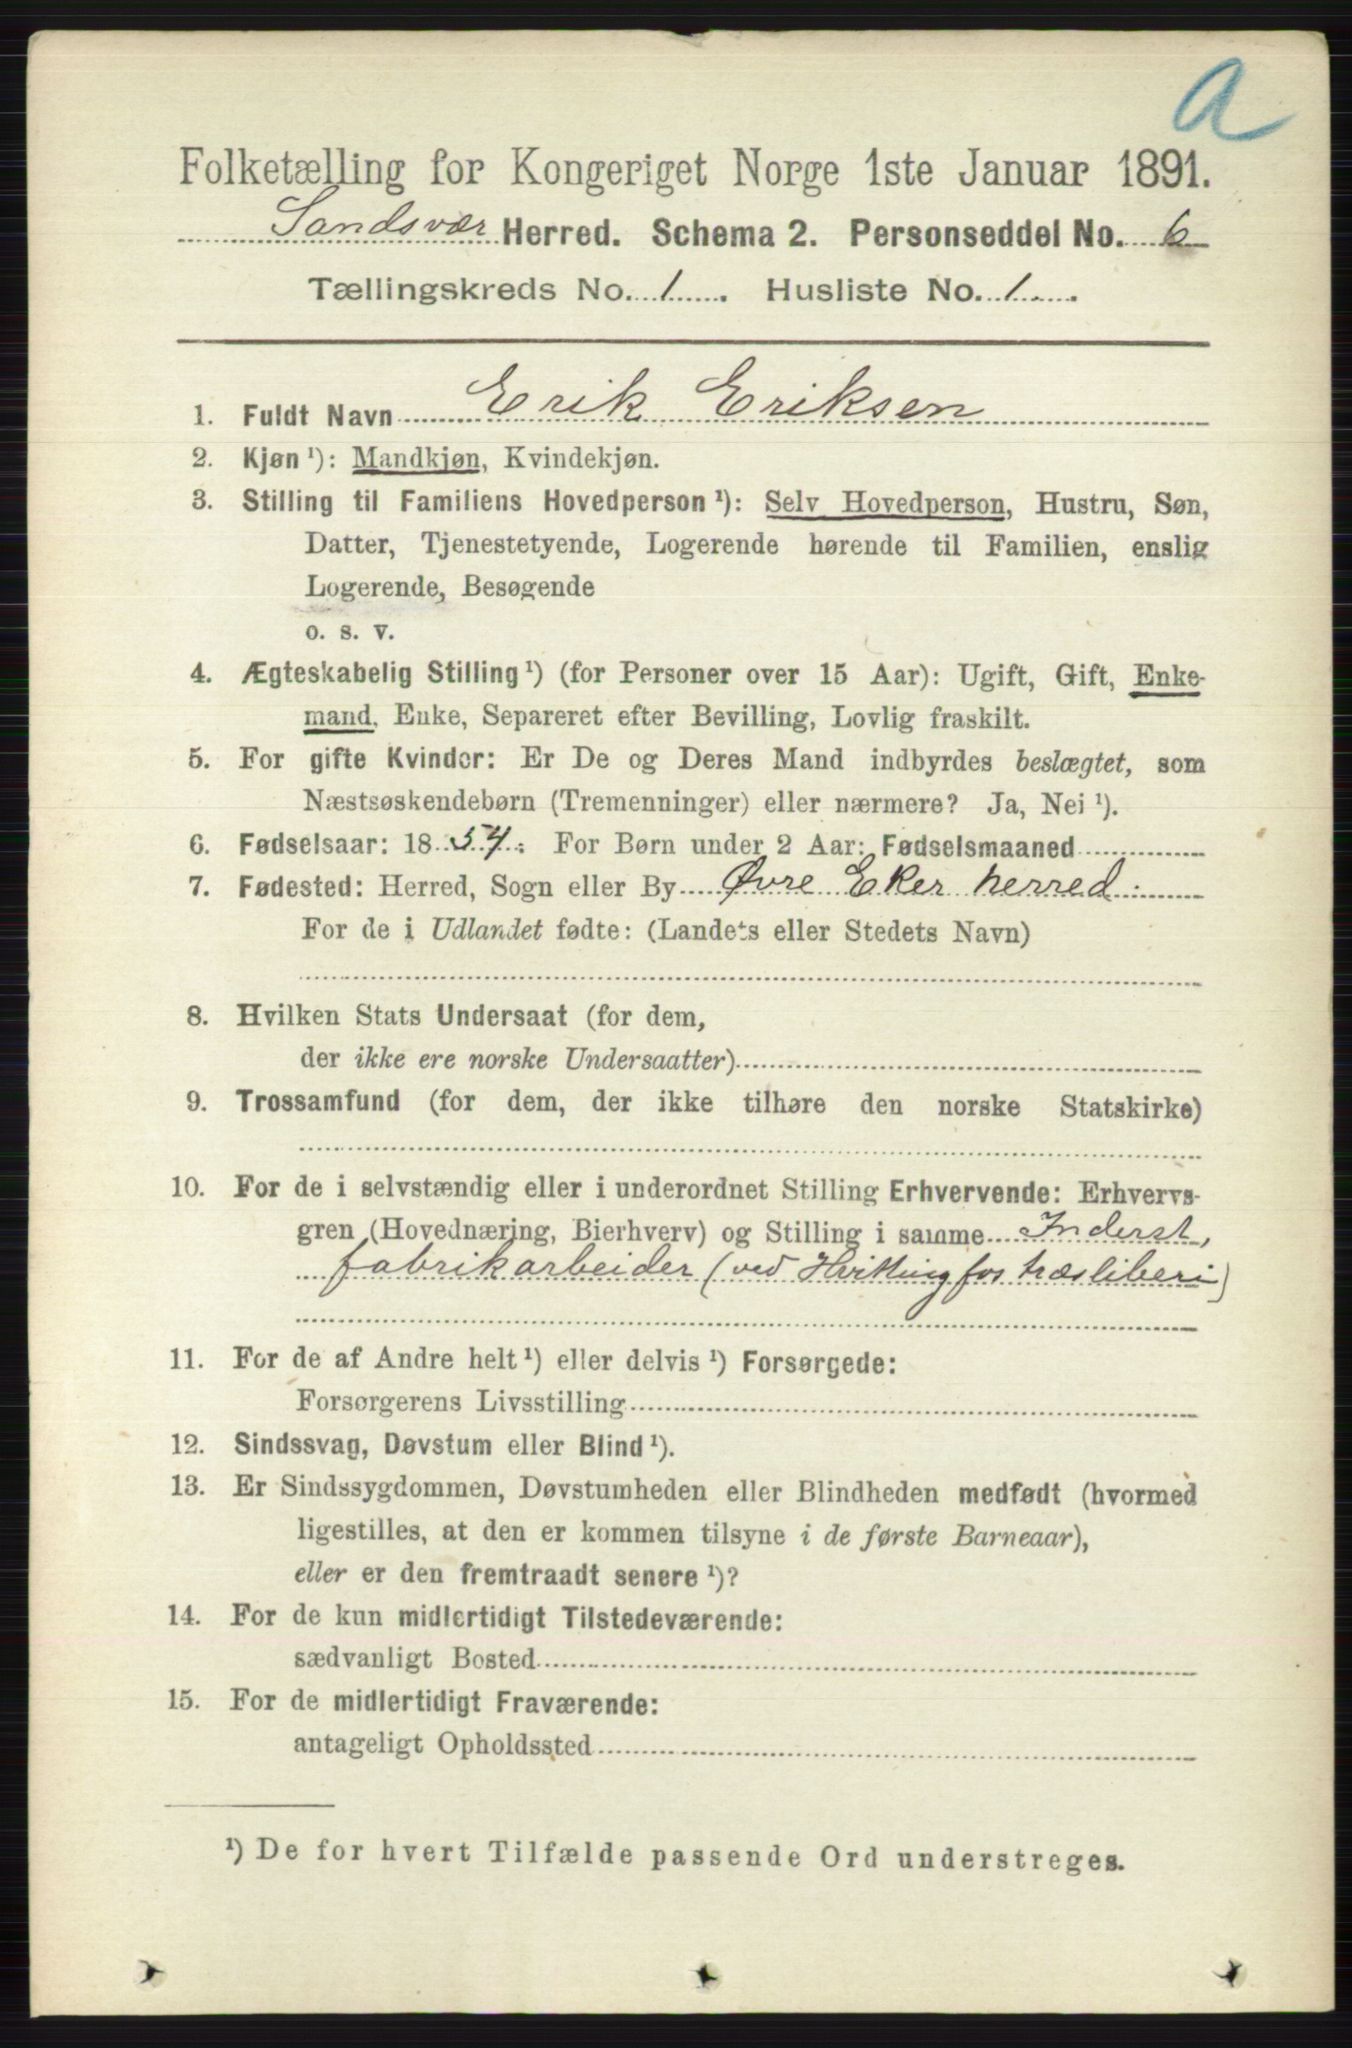 a
Folketælling for Kongeriget Norge 1ste Januar 1891.
Sandsvær Herred. Schema 2. Personseddel No. 6
Tællingskreds No. 1. Husliste No. 1.
1. Fuldt Navn Erik Eriksen
2. Kjøn ¹): Mandkjøn, Kvindekjøn.
3. Stilling til Familiens Hovedperson ¹): Selv Hovedperson, Hustru, Søn,
Datter, Tjenestetyende, Logerende hørende til Familien, enslig
Logerende, Besøgende
o. s. v.
4. Ægteskabelig Stilling ¹) (for Personer over 15 Aar): Ugift, Gift, Enke-
mand, Enke, Separeret efter Bevilling, Lovlig fraskilt.
5. For gifte Kvinder: Er De og Deres Mand indbyrdes beslægtet, som
Næstsøskendebørn (Tremenninger) eller nærmere? Ja, Nei ¹).
6. Fødselsaar: 1854. For Børn under 2 Aar: Fødselsmaaned
7. Fødested: Herred, Sogn eller By Øvre Eker herred.
For de i Udlandet fødte: (Landets eller Stedets Navn)
8. Hvilken Stats Undersaat (for dem,
der ikke ere norske Undersaatter)
9. Trossamfund (for dem, der ikke tilhøre den norske Statskirke)
10. For de i selvstændig eller i underordnet Stilling Erhvervende: Erhvervs-
gren (Hovednæring, Bierhverv) og Stilling i samme Inderst,
fabrikarbeider (ved Hvittingfos træsliberi)
11. For de af Andre helt ¹) eller delvis ¹) Forsørgede:
Forsørgerens Livsstilling
12. Sindssvag, Døvstum eller Blind ¹).
13. Er Sindssygdommen, Døvstumheden eller Blindheden medfødt (hvormed
ligestilles, at den er kommen tilsyne i de første Barneaar),
eller er den fremtraadt senere ¹)?
14. For de kun midlertidigt Tilstedeværende:
sædvanligt Bosted
15. For de midlertidigt Fraværende:
antageligt Opholdssted
¹) De for hvert Tilfælde passende Ord understreges.